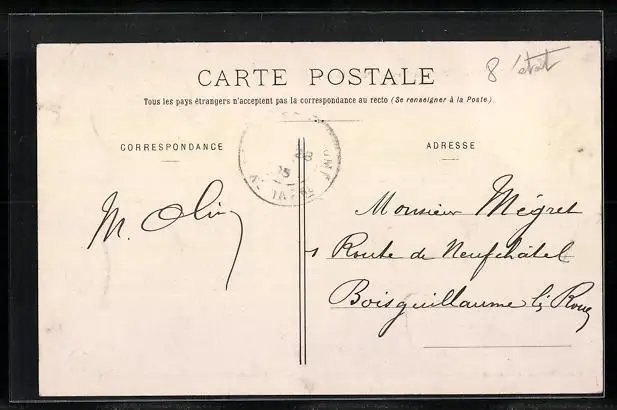 CARTE POSTALE
8
Tous les pays étrangers n'acceptent pas la correspondance au recto (Se renseigner à la Poste).
CORRESPONDANCE
ADRESSE
M. Olin
Monsieur Mégret
1 Route de Neufchâtel
Boisguillaume lz Rouen